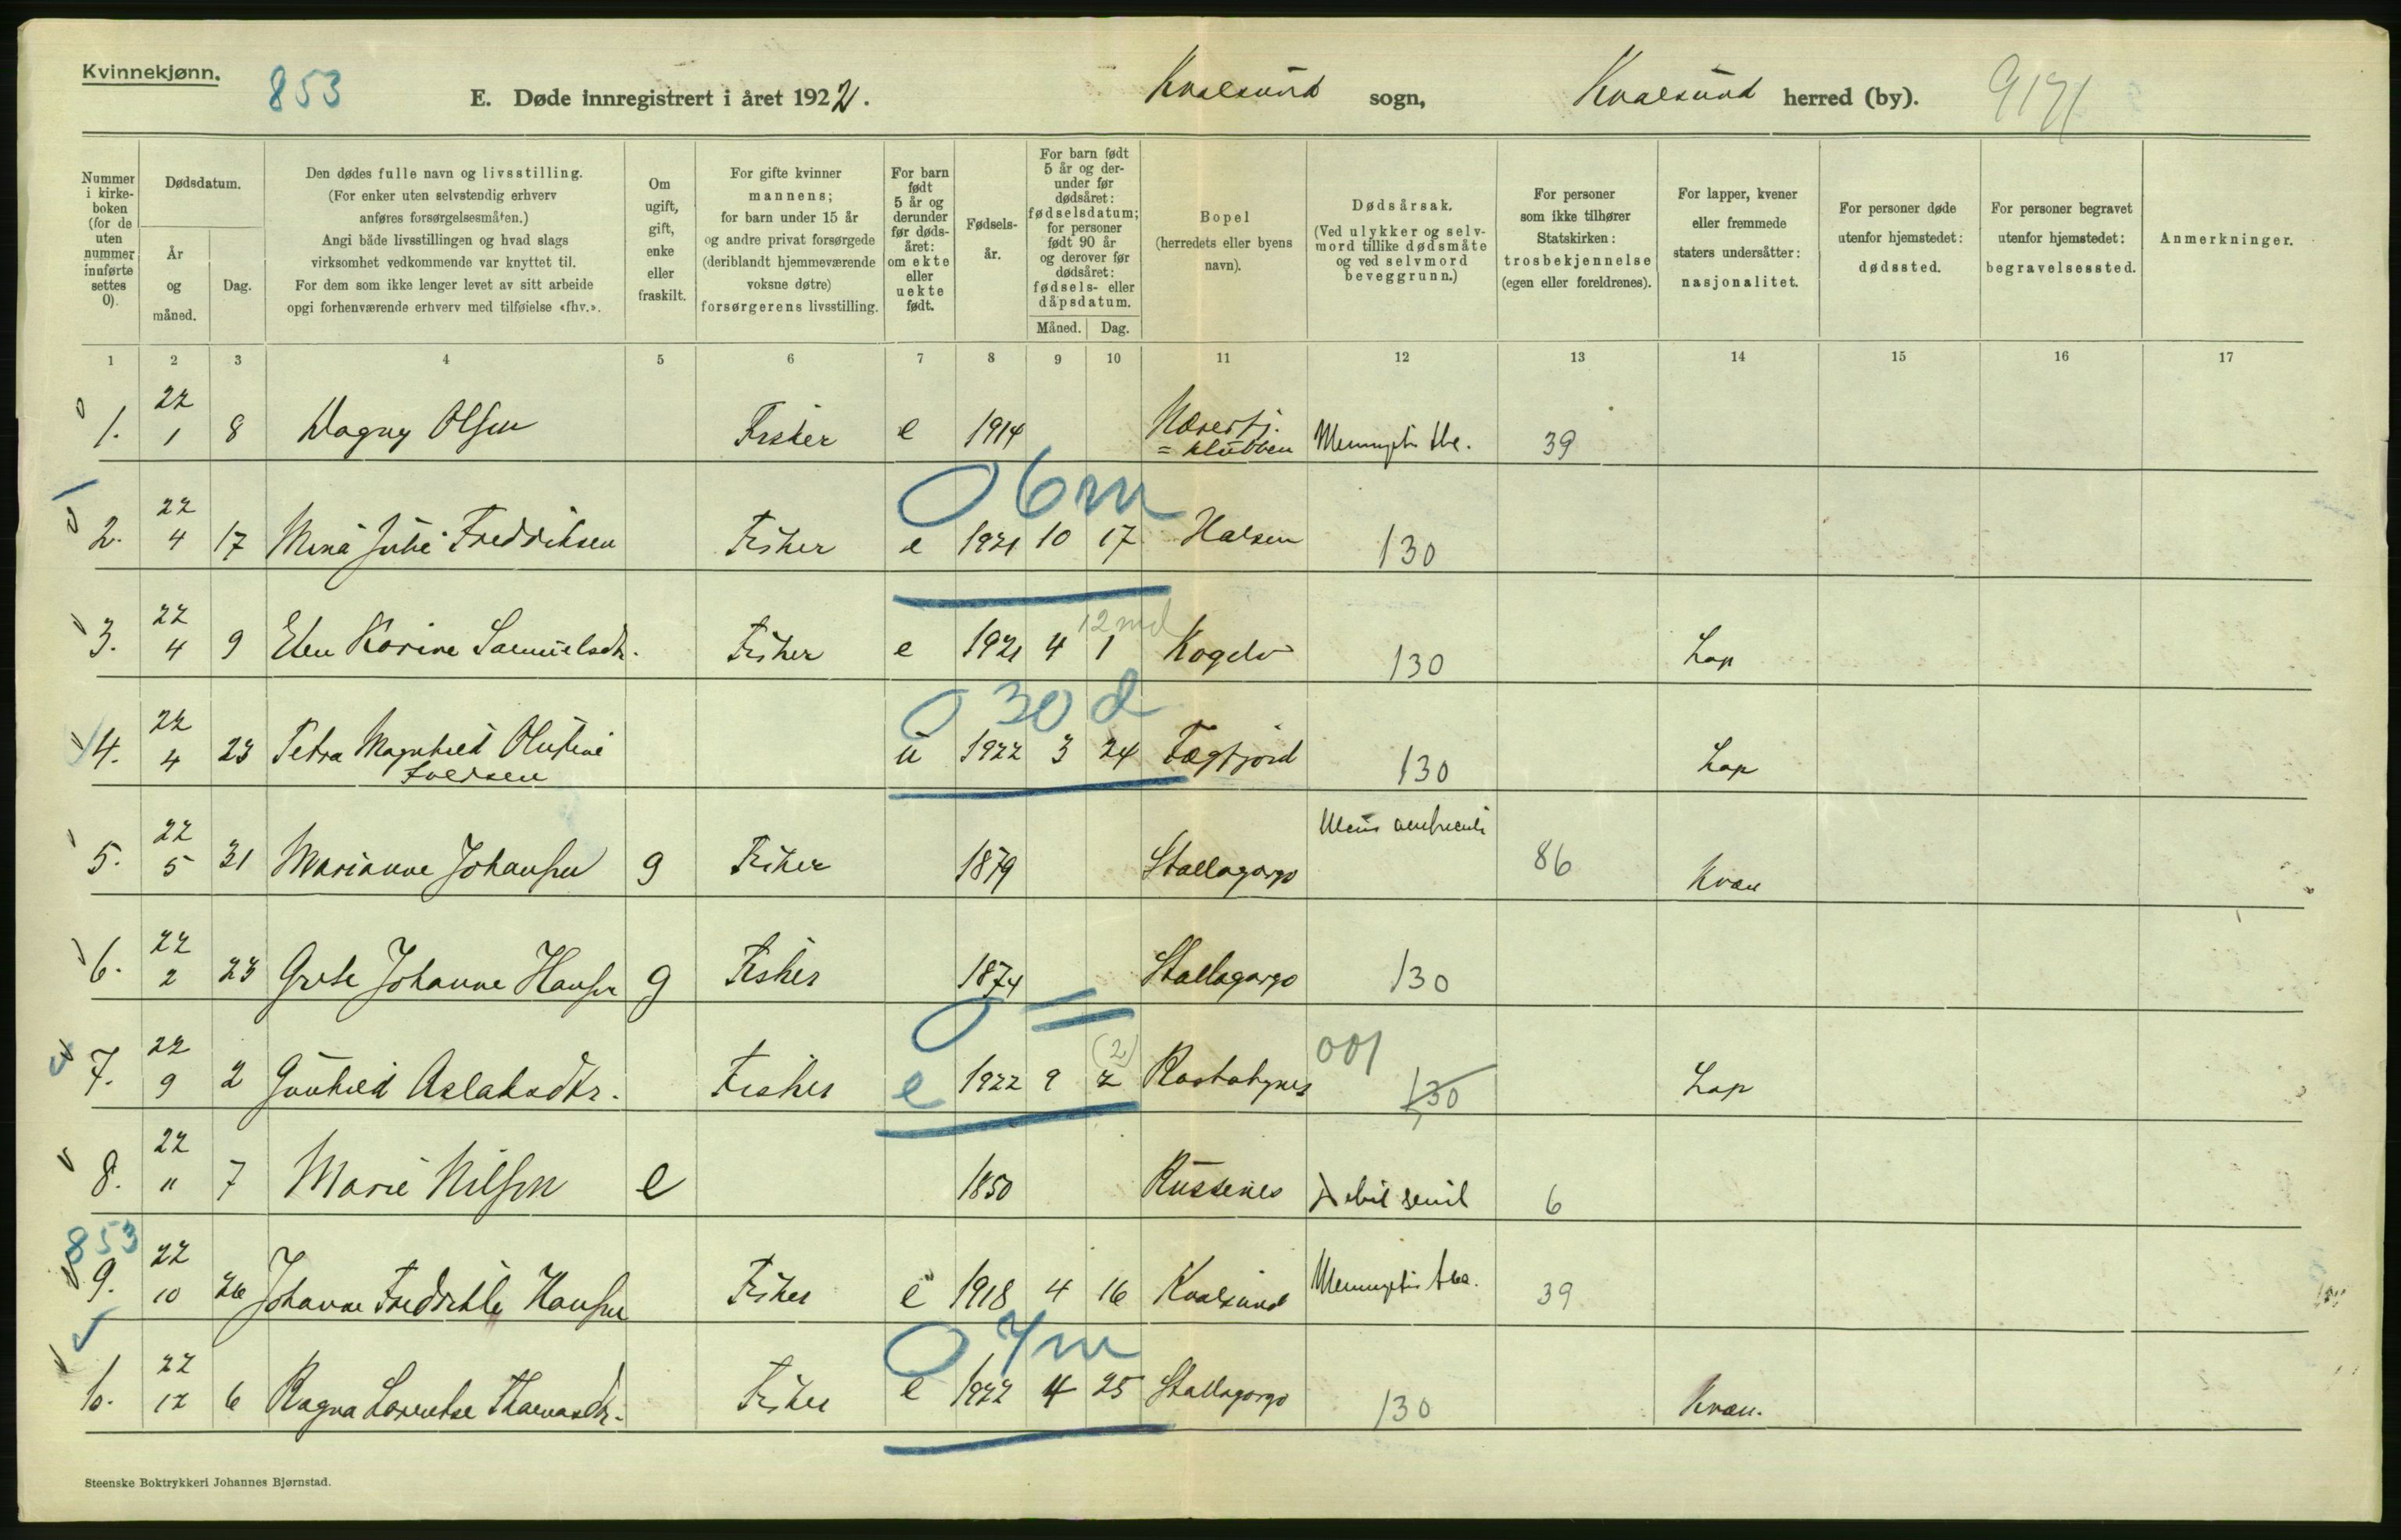 Kvinnekjønn.
853
E. Døde innregistrert i året 1922.
Kvalsund sogn,
Kvalsund herred (by).
9171
Nummer i kirke-boken (for de uten nummer innførte settes 0).
Dødsdatum.
År og måned.
Dag.
Den dødes fulle navn og livsstilling.
(For enker uten selvstendig erhverv
anføres forsørgelsesmåten.)
Angi både livsstillingen og hvad slags
virksomhet vedkommende var knyttet til.
For dem som ikke lenger levet av sitt arbeide
opgi forhenværende erhverv med tilføielse «fhv.».
Om ugift, gift, enke eller fraskilt.
For gifte kvinner
mannens;
for barn under 15 år
og andre privat forsørgede
(deriblandt hjemmeværende
voksne døtre)
forsørgerens livsstilling.
For barn født 5 år og derunder før døds-året: om ekte eller uekte født.
Fødsels-år.
For barn født 5 år og der-under før dødsåret: fødselsdatum; for personer født 90 år og derover før dødsåret: fødsels- eller dåpsdatum.
Måned. Dag.
Bopel
(herredets eller byens
navn).
Dødsårsak.
(Ved ulykker og selv-
mord tillike dødsmåte
og ved selvmord
beveggrunn.)
For personer
som ikke tilhører
Statskirken:
trosbekjennelse
(egen eller foreldrenes).
For lapper, kvener
eller fremmede
staters undersåtter:
nasjonalitet.
For personer døde
utenfor hjemstedet:
dødssted.
For personer begravet
utenfor hjemstedet:
begravelsessted.
Anmerkninger.
1 2 3 4 5 6 7 8 9 10 11 12 13 14 15 16 17
22
1. 1 8 Dagny Olsen Fisker e 1914 Næverfj.
= klubben Meningitis tbc. 39
0 6 m
22
2. 4 17 Mina Julie Fredriksen Fisker e 1921 10 17 Halsen 130
12 md
22
3. 4 9 Elen Karine Samuelsdtr. Fisker e 1921 4 1 130 Lap
0 30 d
22
4. 4 23 Petra Magnhild Olufine u 1922 3 24 Fægfjord 130 Lap
22
5. 5 31 Marianne Johansen g Fisker 1879 Stallogargo 86 Kvæn
22
6. 2 23 Grete Johanne Hansen g Fisker 1874 Stallogargo 130
0
(2) 001
22
7. 9 2 Gunhild Aslaksdtr. Fisker e 1922 9 2 130 Lap
22
8. 11 7 Marie Nilsen e 1850 Russenes Debil senil 6
853
22
9. 10 26 Johanne Fredrikke Hansen Fisker e 1918 4 16 Kvalsund Meningitis tbc. 39
0 7 m
22
10. 12 6 Ragna Lorentse Thomasdtr. Fisker e 1922 4 25 Stallogargo 130 Kvæn.
Steenske Boktrykkeri Johannes Bjørnstad.